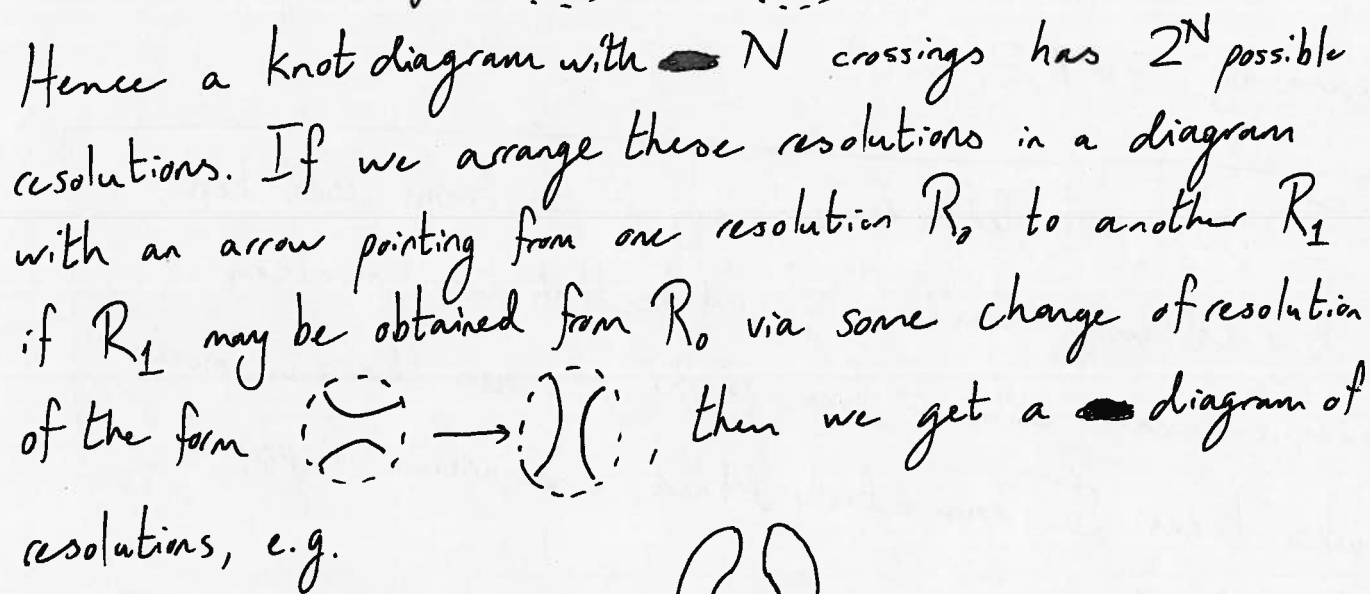 Hence a knot diagram with N crossings has 2^N possible
resolutions. If we arrange these resolutions in a diagram
with an arrow pointing from one resolution R₀ to another R₁
if R₁ may be obtained from R₀ via some change of resolution
of the form → , then we get a diagram of
resolutions, e.g.